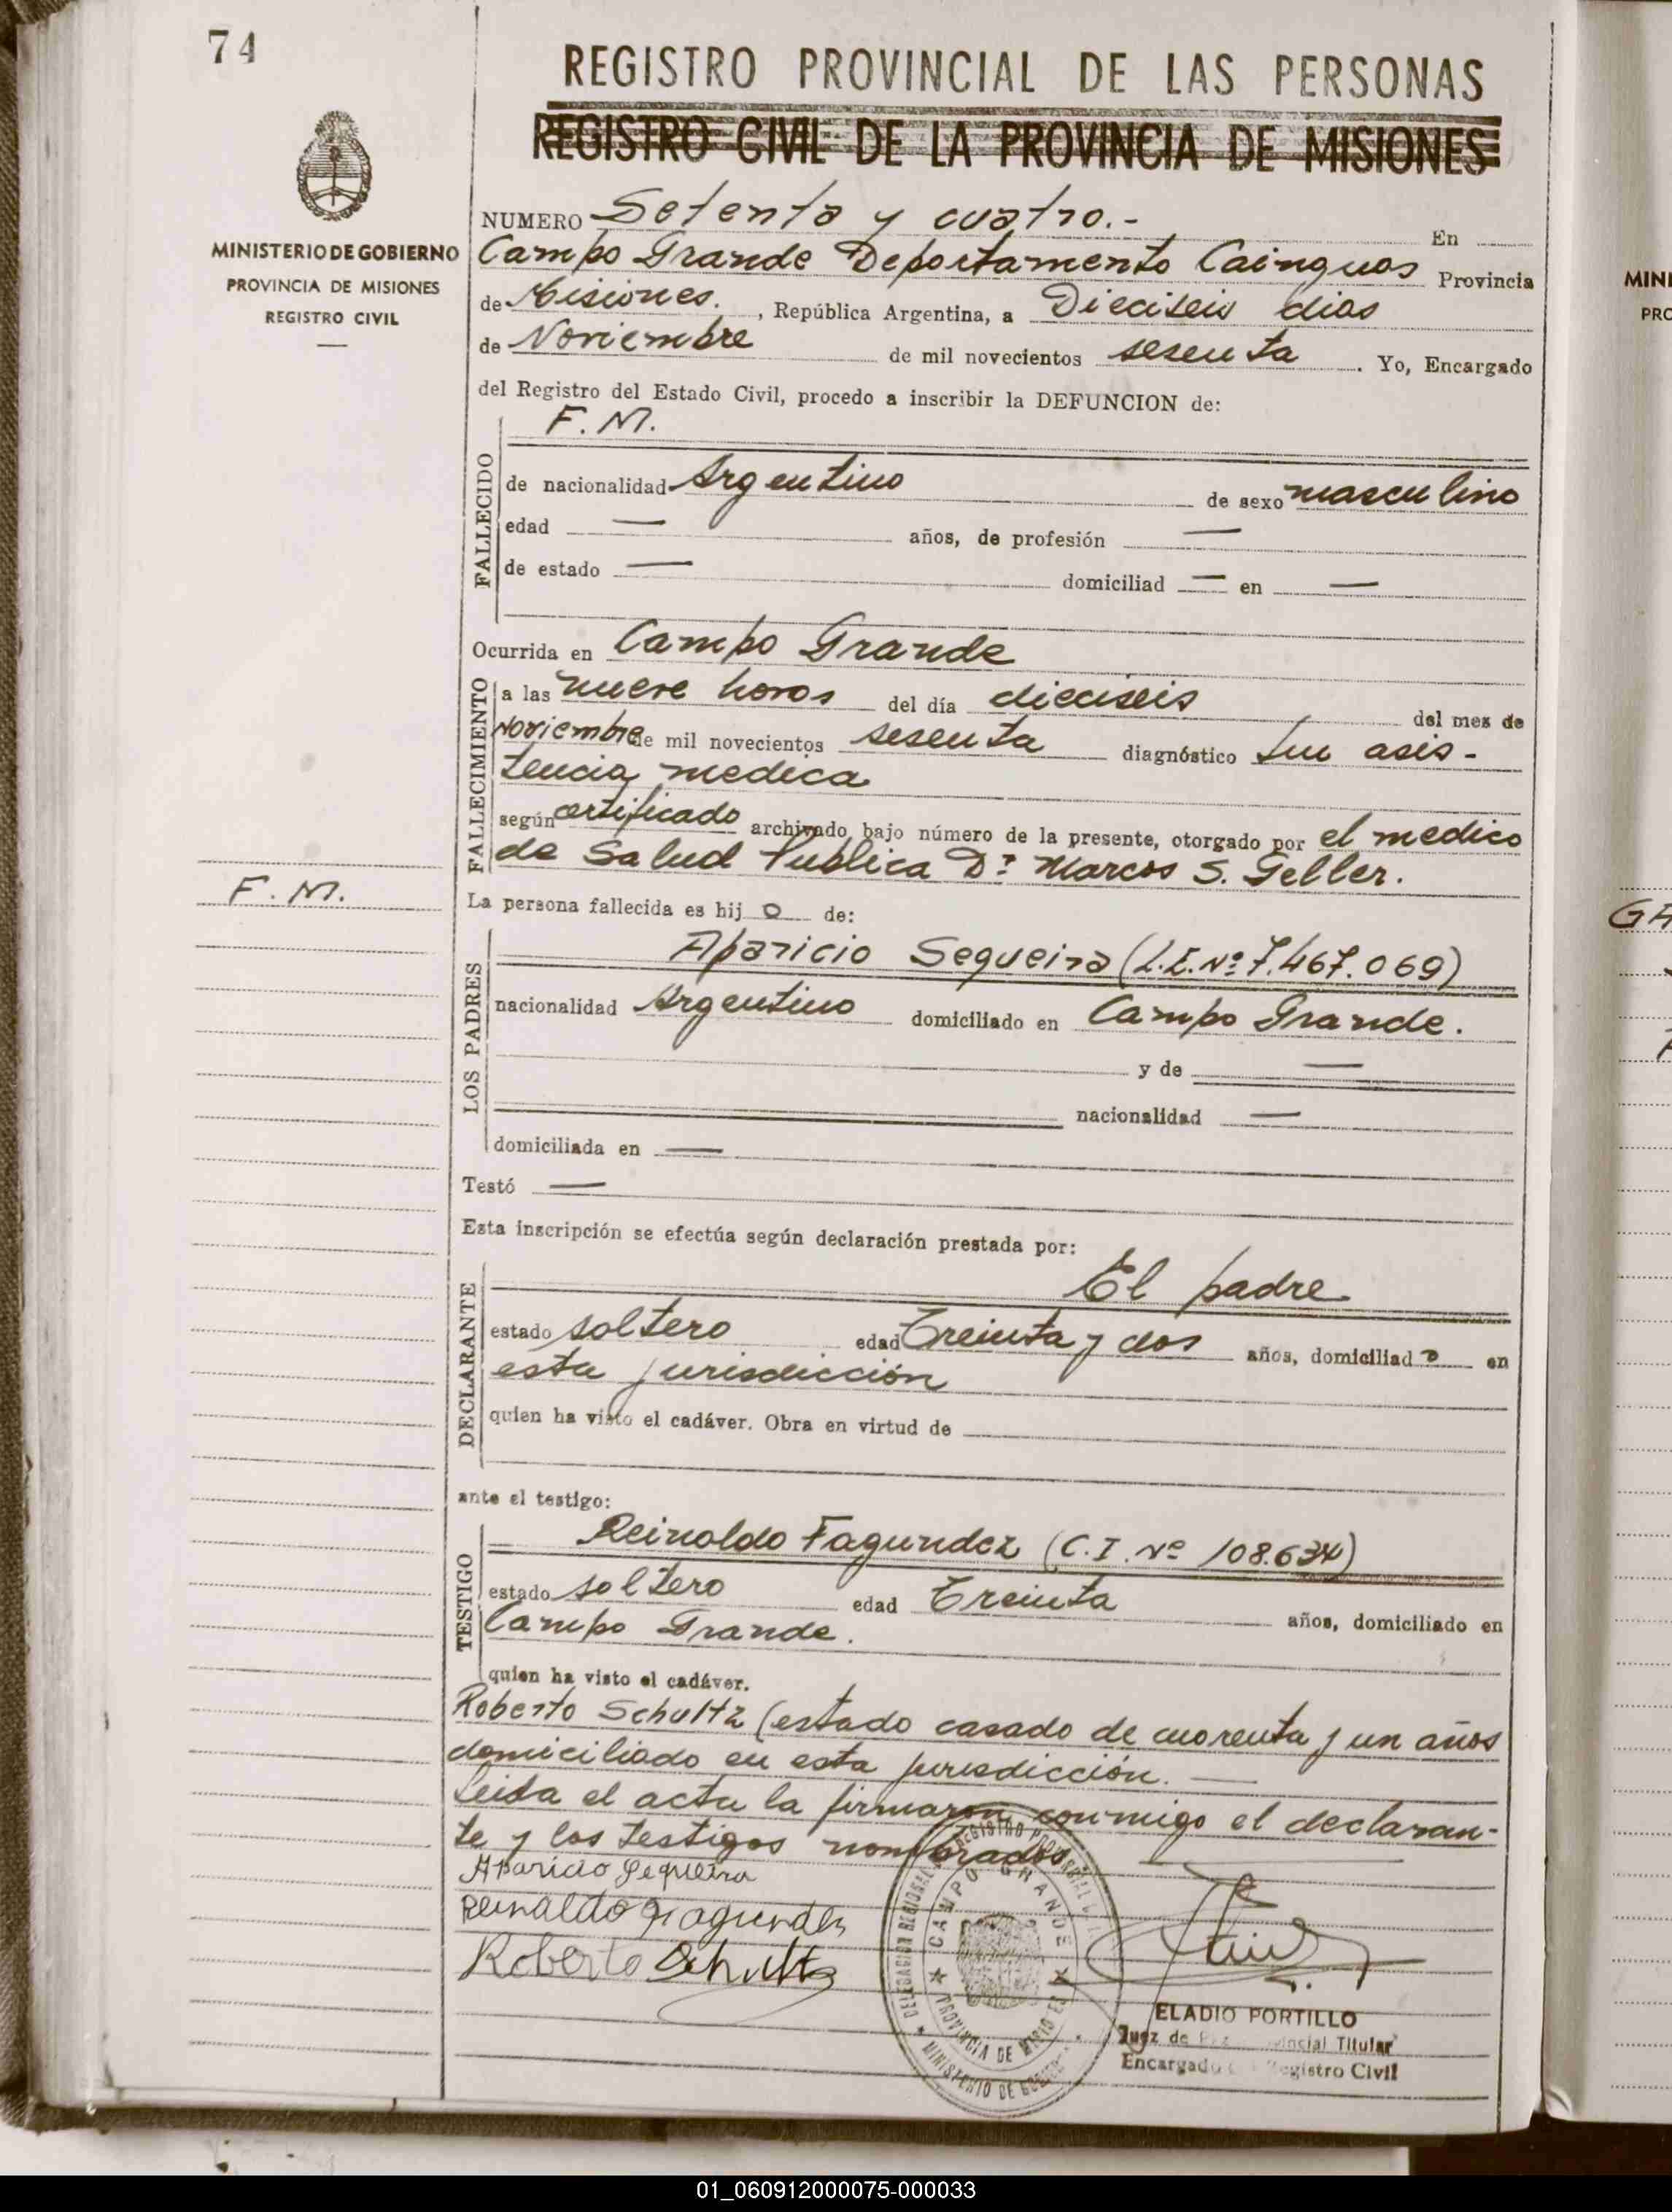 74
REGISTRO PROVINCIAL DE LAS PERSONAS
REGISTRO CIVIL DE LA PROVINCIA DE MISIONES
MINISTERIO DE GOBIERNO
PROVINCIA DE MISIONES
REGISTRO CIVIL
NUMERO Setenta y cuatro.- En
Campo Grande Departamento Cainguas Provincia
de Misiones. , República Argentina, a Dieciseis dias
de Noviembre de mil novecientos sesenta . Yo, Encargado
del Registro del Estado Civil, procedo a inscribir la DEFUNCION de:
F. M.
FALLECIDO
de nacionalidad Argentino de sexo masculino
edad — años, de profesión —
de estado — domiciliad — en —
Ocurrida en Campo Grande
FALLECIMIENTO
a las nueve horas del día dieciseis del mes de
Noviembre de mil novecientos sesenta diagnóstico Sin asis-
tencia medica
según certificado archivado bajo número de la presente, otorgado por el medico
de Salud Publica Dr. Marcos S. Geller.
F. M.
La persona fallecida es hij o de:
LOS PADRES
Aparicio Sequeira (L.E. Nº 7.467.069)
nacionalidad Argentino domiciliado en Campo Grande.
y de —
nacionalidad —
domiciliada en —
Testó —
Esta inscripción se efectúa según declaración prestada por:
DECLARANTE
El padre
estado soltero edad Treinta y dos años, domiciliad o en
esta jurisdicción
quien ha visto el cadáver. Obra en virtud de
ante el testigo:
TESTIGO
Reinaldo Fagundez (C.I. Nº 108.634)
estado soltero edad Treinta años, domiciliado en
Campo Grande.
quien ha visto el cadáver.
Roberto Schultz (estado casado de cuarenta y un años
domiciliado en esta jurisdicción. —
Leida el acta la firmaron conmigo el declaran-
te y los testigos nombrados.
Aparicio Sequeira
Reinaldo Fagundez
Roberto Schultz
CAMPO GRANDE
PROVINCIA DE MISIONES
ELADIO PORTILLO
Juez de Titular
Encargado Registro Civil
MINI
PRO
GA
01_060912000075-000033